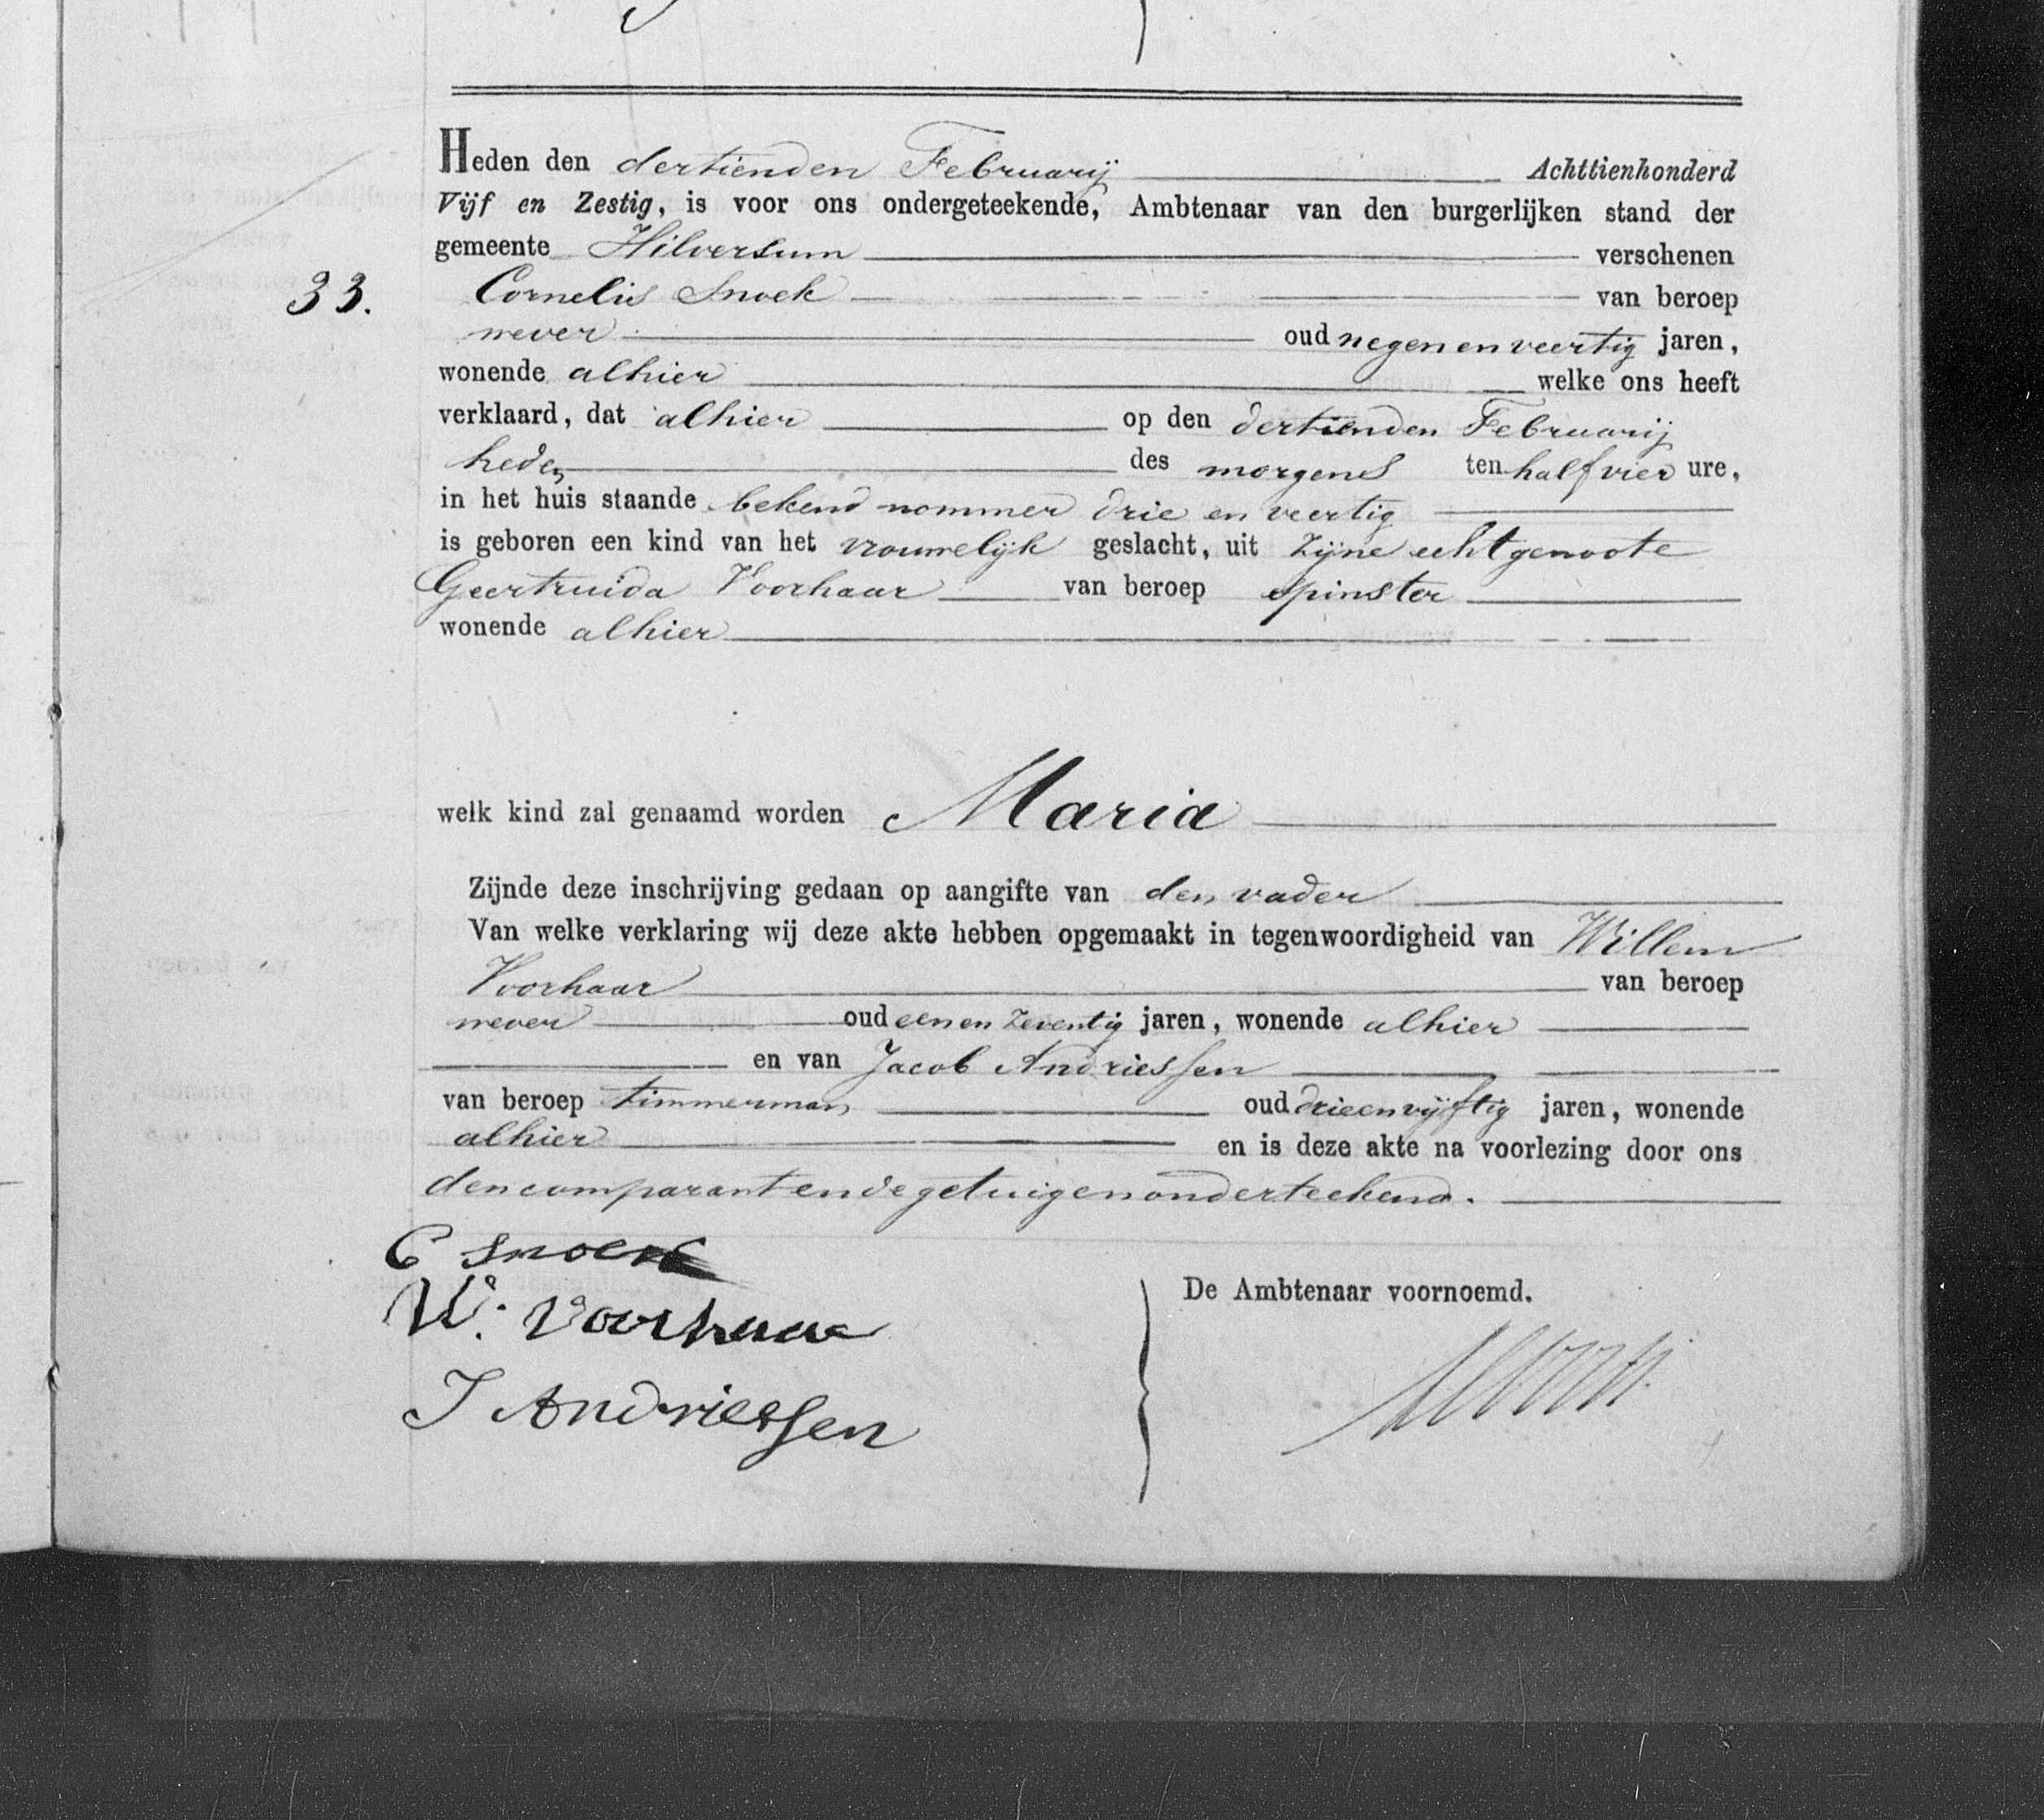 Heden den dertienden Februarij Achttienhonderd
Vijf en Zestig, is voor ons ondergeteekende, Ambtenaar van den burgerlijken stand der
gemeente Hilversum verschenen
33. Cornelis Snoek van beroep
wever oud negen en veertig jaren,
wonende alhier welke ons heeft
verklaard, dat alhier op den dertienden Februarij
heden des morgens ten half vier ure,
in het huis staande bekend nommer drie en veertig
is geboren een kind van het vrouwelijk geslacht, uit zijne echtgenoote
Geertruida Voorhaar van beroep spinster
wonende alhier
welk kind zal genaamd worden Maria
Zijnde deze inschrijving gedaan op aangifte van den vader
Van welke verklaring wij deze akte hebben opgemaakt in tegenwoordigheid van Willem
Voorhaar van beroep
wever oud een en zeventig jaren, wonende alhier
en van Jacob Andriessen
van beroep timmerman oud drie en vijftig jaren, wonende
alhier en is deze akte na voorlezing door ons
den comparant en de getuigen onderteekend.
C Snoek
W. Voorhaar
De Ambtenaar voornoemd.
J Andriessen